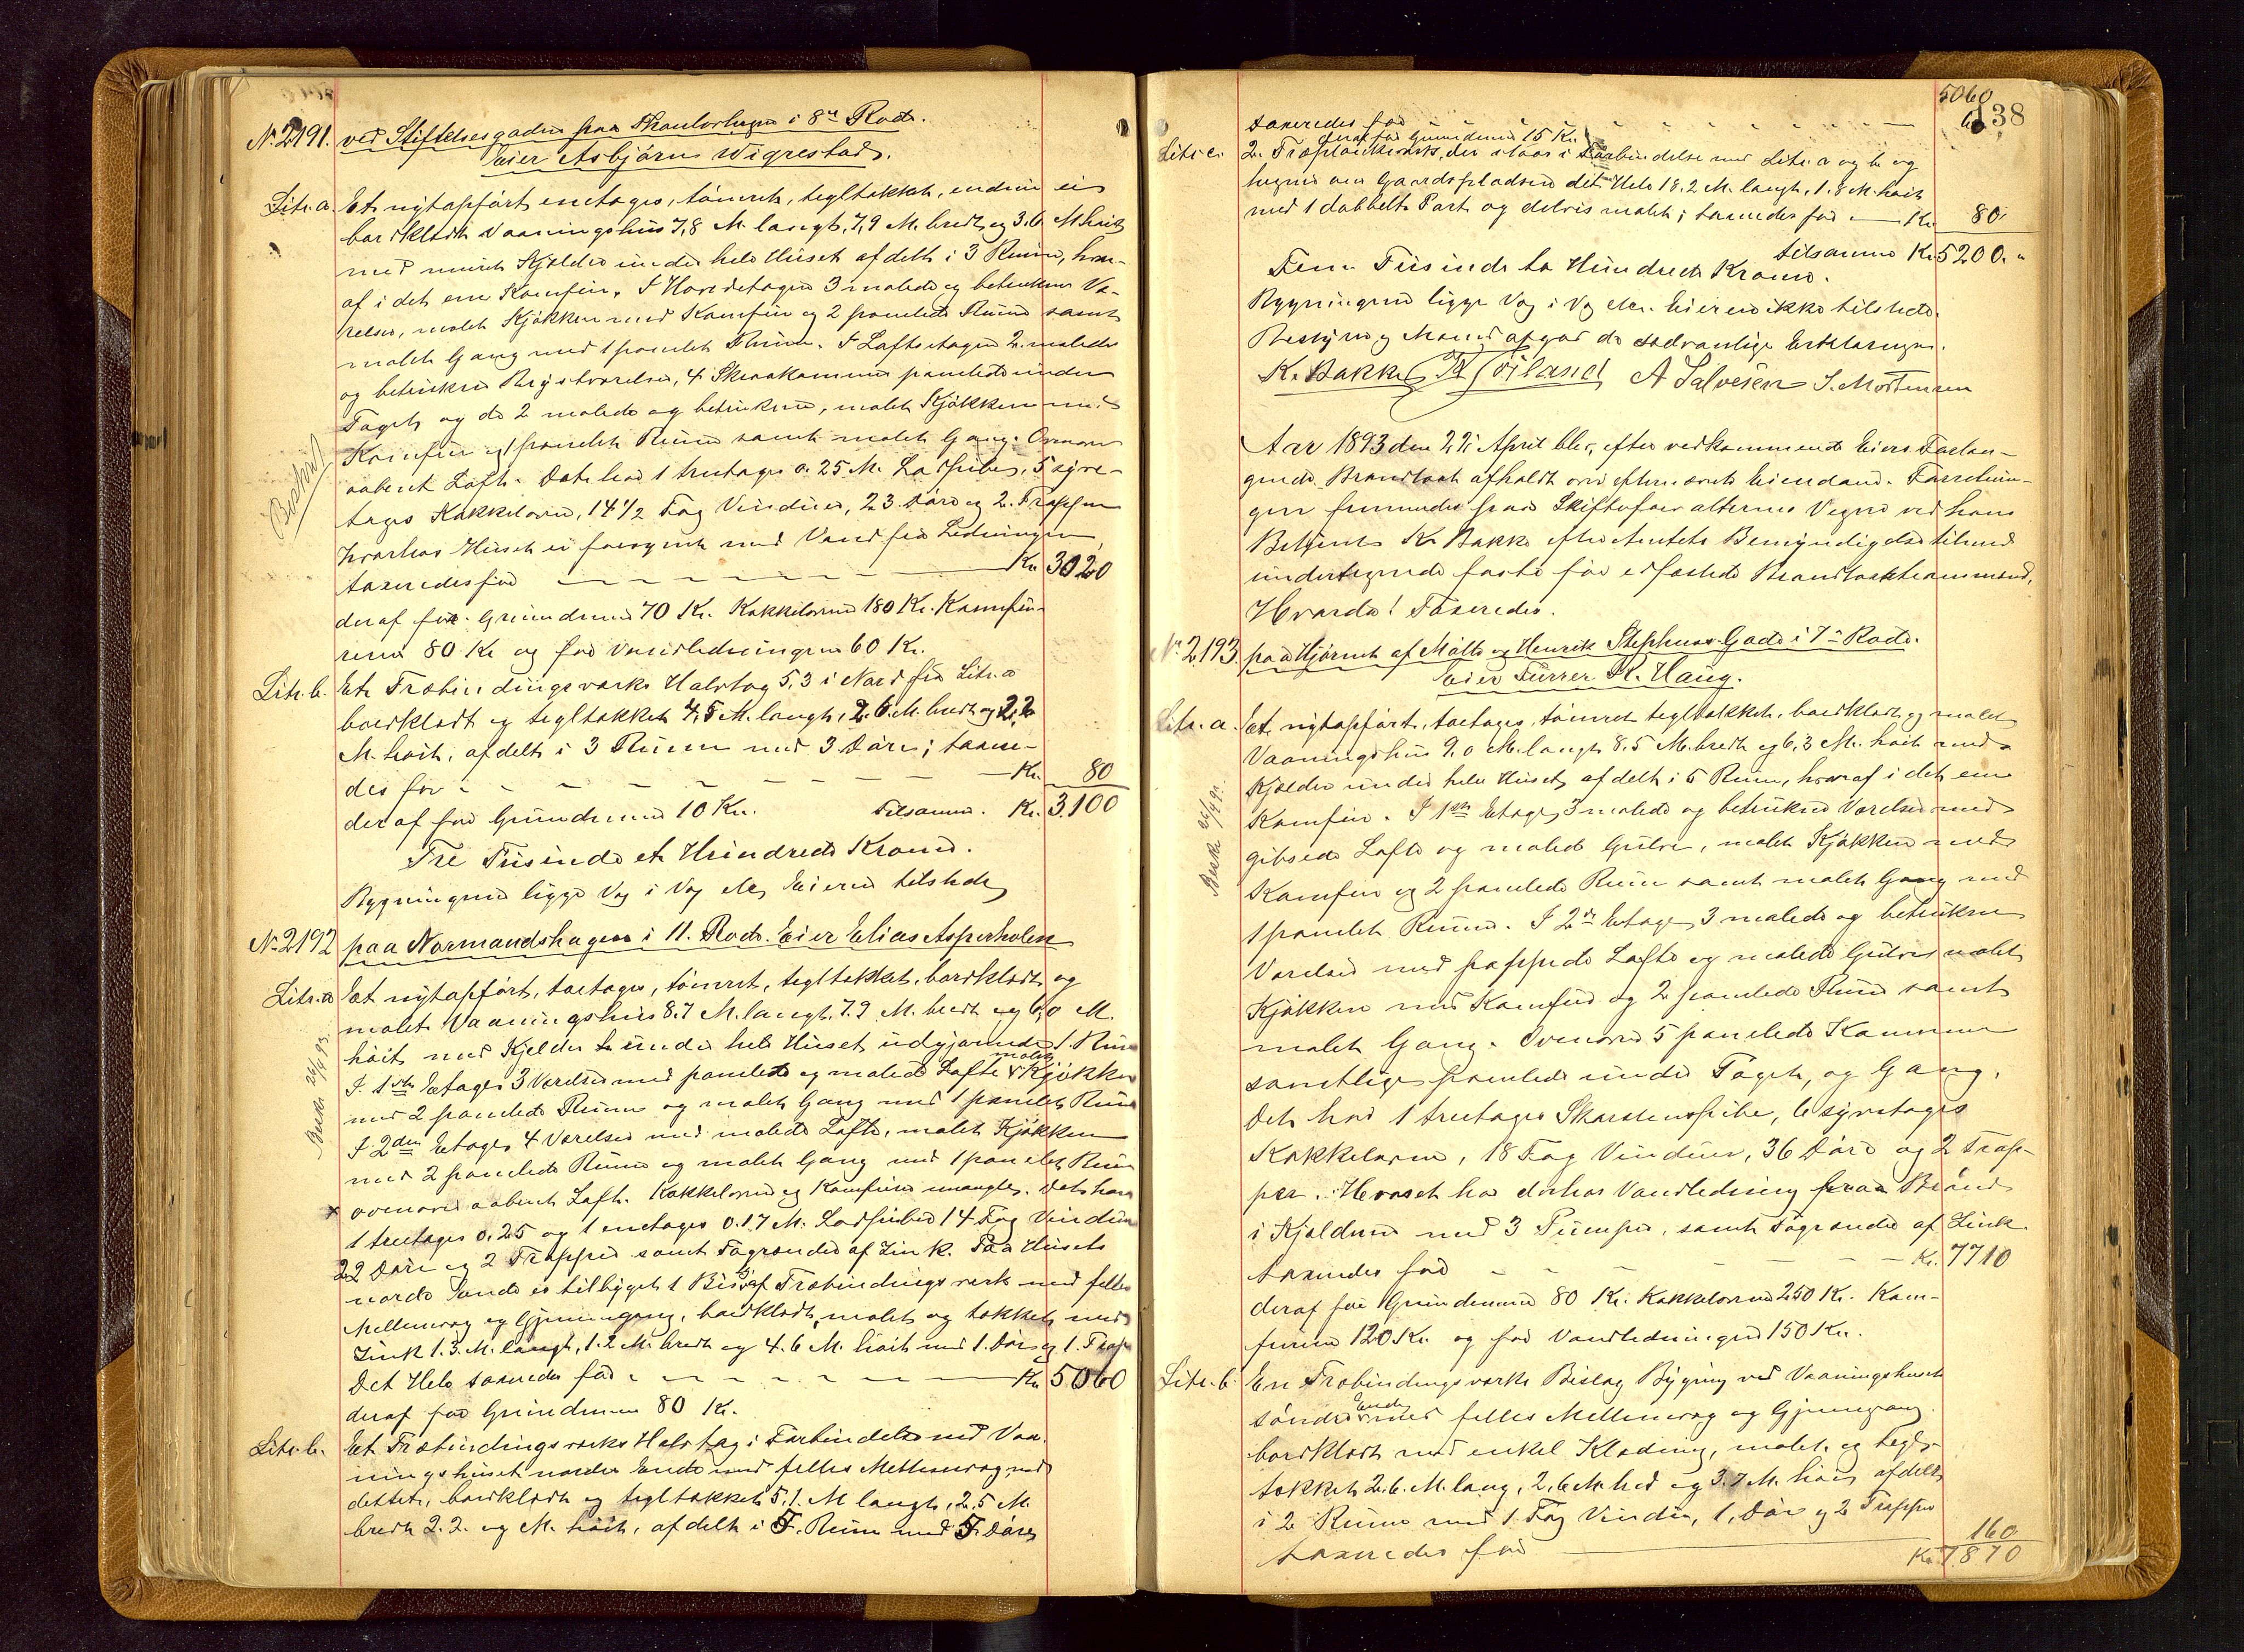 No 2191. ved Stiftelsesgaden paa Skanlorhagen i 8de Rode.
Eier Asbjørn Wigrestad.
Litr. a. Et nÿtopført enetages, tømret, tegltækket, endnu ei
bordklædt Vaaningshus 7,8 M. langt, 7,9 M. bredt og 3.6 M høit
med muret Kjælder under hele Huset afdelt i 3 Rum, hvor-
af i det ene Komfür. I Hovedetagen 3 malede og betrukne Væ-
relser, malet Kjøkken med Komfür og 2 panelede Rum samt
malet Gang med 1 panelet Rum. I Loftsetagen 2 malede
og betrukne Krÿstværelser, 4 Skraakammer panelede under
Taget og de 2 malede og betrukne, malet Kjøkken med
Komfür og 1 panelet Rum samt malet Gang. Ovenover
aabent Loft. Det har 1 treetages 0.25 M. Lodpibe, 5 syre-
tages Kakkelovne, 14 1/2 Fag Vinduer, 23 Døre og 2 Trapper
hvorhos Huset er forsynet med Vand fra Ledningen,
taxeredes for — — — Kr. 3020
deraf for Grundmur 70 Kr. Kakkelovne 180 Kr. Komfü-
rerne 80 Kr og for Vandledningen 60 Kr.
Litr. b. Et Træbindingsværks Halvtag 5,3 i Nord fra Litr. a
bordklædt og tegltækket 4,5 M. langt, 2.6 M. bredt og 2,2
M. høit, afdelt i 3 Rum med 3 Døre; taxere-
des for — — — Kr. 80
deraf for Grundmur 10 Kr. Tilsammen. Kr. 3.100
Tre Tusinde et Hundrede Kroner.
Bygningerne ligge Væg i Væg etc, Eieren tilstede,
Besk.
No 2192 paa Normandshagen i 11. Rode. Eier Elias Asperholen
Litr. a Et nÿtopført, toetages, tømret, tegltækket, bordklædt og
malet Vaaningshus 8.7 M. langt. 7.9 M. bredt og 6,0 M.
høit med Kjelder under hele Huset udgjørende 1. Rum
I 1ste Etage 3 Værelser med panelede og malede Lofte malet Kjøkken
med 2 panelede Rum og malet Gang med 1 panelet Rum
I 2den Etage 4 Værelser med malede Lofte, malet Kjøkken
med 2 panelede Rum og malet Gang med 1 panelet Rum
x ovenover aabent Loft. Kakkelovne og Komfürer mangler. Det har
1 treetages 0.25 og 1 enetages 0.17 M. Lodpiber 14 Fag Vinduer
22 Døre og 2 Trapper samt Tagrender af Zink. Paa Husets
nordre Ende er tilbÿget 1 Bislag af Træbindingsværk med felles
Mellemvæg og Gjennemgang, bordklædt, malet og tækket med
Zink 1.3. M. langt, 1.2 M. bredt og 4.6 M. høit med 1. Dør og 1. Trap
Det Hele taxeredes for — — — Kr 5060
deraf for Grundmur 80 Kr.
Besk. 26/4 93.
Litr. b. Et Træbindingsværks Halvtag i Forbindelse med Vaa-
ningshuset nordre Ende med felles Mellemvæg med
dettet, bordklædt og tegltækket 5,1. M langt, 2.5 M.
bredt 2.2. og M. høit, afdelt i 5. Rum med 5 Døre
5060
138
taxeredes for — — — 60
deraf for Grundmur 15 Kr.
Litr. c. 2. Træplankeværk, der staar i Forbindelse med Litr. a og b og
hegner om Gaardspladsen det Hele 18.2 M. langt, 1.8 M. høit
med 1 dobbelt Port og delvis malet; taxeredes for — Kr. 80
tilsammen Kr 5200.
Fem Tusinde to Hundrede Kroner.
Bygningerne ligge Væg i Væg etc. Eieren ikke tilstede.
Bestÿrer og Mænd afgav de sædvanlige Erklæringer.
K. Bakke A Salvesen S. Mortensen
Aar 1893 den 22. April blev, efter vedkommende Eiers Forlan-
gende Brandtaxt afholdt over efternævnte Eiendom. Forretnin-
gen fremmedes paa Skiftefoervalternes Vegne ved hans
Betjent K. Bakke efter Amtets Bemyndigelse tilmed
undertegnede faste før edfæstede Brandtaxtionsmænd,
Hvorda! Taxeredes.
No 2193 paa Hjørnet af Møllе og Henrik Stephens Gade i 7de Rode.
Eier Furrer. R. Haug.
Litr. a. Et nÿtopført, toetages, tømret tegltækket, bordklædt og malet
Vaaningshus 9.0 M. langt 8.5 M. bredt og 6,3 M. høit med
Kjælder under hele Huset, afdelt i 5 Rum, hvoraf i det ene
Komfür. I 1ste Etage 3 malede og betrukne Værelser med
gibsede Lofte og malede Gulve, malet Kjøkken med
Komfür og 2 panelede Rum samt malet Gang med
1 panelet Rum. I 2den Etage 3 malede og betrukne
Værelser med pappede Lofte og malede Gulve, malet
Kjøkken med Komfür og 2 panelede Rum samt
malet Gang. Ovenover 5 panelede Kammer
samtlige panelede under Taget, og Gang.
Det har 1 treetages Skorstenspibe, 6 syretages
Kakkelovne, 18 Fag Vinduer, 36 Døre og 2 Trap-
per. Huset har derhos Vandledning fra Brønd
i Kjælderen med 3 Pumper, samt Tagrender af Zink
taxeredes for — — — Kr. 7710
deraf for Grundmur 80 Kr. Kakkelovne 250 Kr. Kom-
fürerne 120 Kr. og for Vandledningen 150 Kr.
Besk. 26/4 93.
Litr. b. En Træbindingsværks Bislag Bÿgning ved Vaaningshuset
søndre Ende med felles Mellemvæg og Gjennegang.
bordklædt med enkel Klædning, malet og tegl-
tækket 2.6. M. lang, 2,6 M. bred og 3.7 M. høi, afdelt
i 2 Rum med 1 Fag Vindu, 1, Dør og 2 Trapper
taxeredes for — 160
Kr. 7870